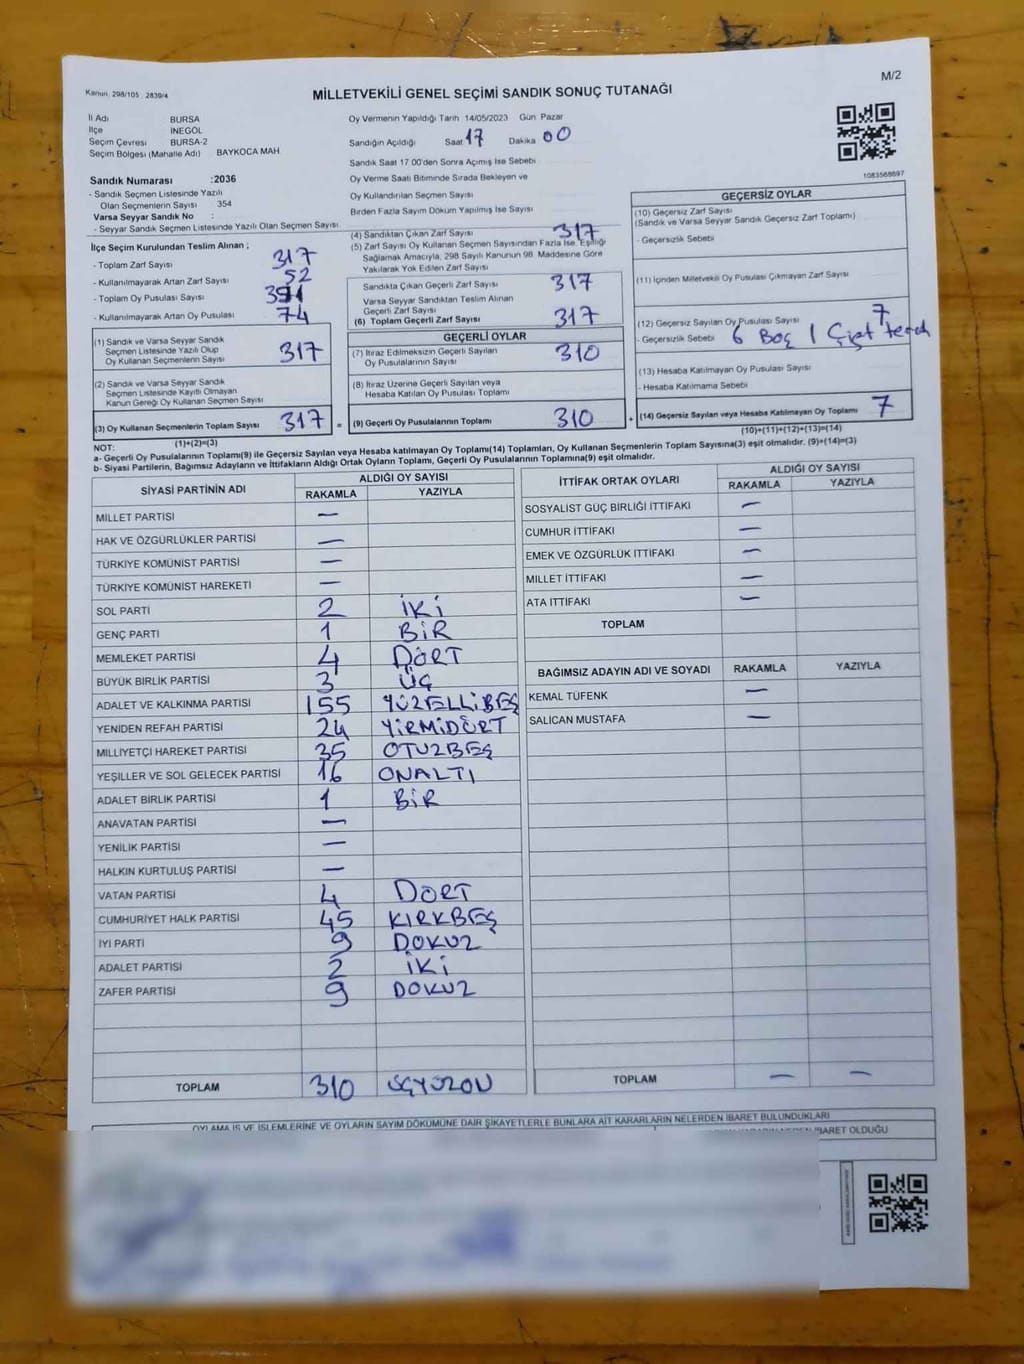 M/2
Kanun: 298/105 2839/4
MİLLETVEKİLİ GENEL SEÇİMİ SANDIK SONUÇ TUTANAĞI
İl Adı BURSA
İlçe İNEGÖL
Seçim Çevresi BURSA-2
Seçim Bölgesi (Mahalle Adı) BAYKOCA MAH.
Sandık Numarası :2036
- Sandık Seçmen Listesinde Yazılı
Olan Seçmenlerin Sayısı 354
Varsa Seyyar Sandık No :
- Seyyar Sandık Seçmen Listesinde Yazılı Olan Seçmen Sayısı
Oy Vermenin Yapıldığı Tarih 14/05/2023 Gün Pazar
Sandığın Açıldığı Saat 17 Dakika 00
Sandık Saat 17.00'den Sonra Açımış İse Sebebi
Oy Verme Saati Bitiminde Sırada Bekleyen ve
Oy Kullandırılan Seçmen Sayısı
Birden Fazla Sayım Döküm Yapılmış İse Sayısı
1083568697
İlçe Seçim Kurulundan Teslim Alınan ;
- Toplam Zarf Sayısı 317
- Kullanılmayarak Artan Zarf Sayısı 52
- Toplam Oy Pusulası Sayısı 391
- Kullanılmayarak Artan Oy Pusulası 74
(1) Sandık ve Varsa Seyyar Sandık
Seçmen Listesinde Yazılı Olup
Oy Kullanan Seçmenlerin Sayısı 317
(2) Sandık ve Varsa Seyyar Sandık
Seçmen Listesinde Kayıtlı Olmayan
Kanun Gereği Oy Kullanan Seçmen Sayısı
(3) Oy Kullanan Seçmenlerin Toplam Sayısı 317 =
(1)+(2)=(3)
(4) Sandıktan Çıkan Zarf Sayısı 317
(5) Zarf Sayısı Oy Kullanan Seçmen Sayısından Fazla İse, Eşitliği
Sağlamak Amacıyla, 298 Sayılı Kanunun 98. Maddesine Göre
Yakılarak Yok Edilen Zarf Sayısı
Sandıkta Çıkan Geçerli Zarf Sayısı 317
Varsa Seyyar Sandıktan Teslim Alınan
Geçerli Zarf Sayısı
(6) Toplam Geçerli Zarf Sayısı 317
GEÇERLİ OYLAR
(7) İtiraz Edilmeksizin Geçerli Sayılan
Oy Pusulalarının Sayısı 310
(8) İtiraz Üzerine Geçerli Sayılan veya
Hesaba Katılan Oy Pusulası Toplamı
(9) Geçerli Oy Pusulalarının Toplamı 310 +
GEÇERSİZ OYLAR
(10) Geçersiz Zarf Sayısı
(Sandık ve Varsa Seyyar Sandık Geçersiz Zarf Toplamı)
- Geçersizlik Sebebi
(11) İçinden Milletvekili Oy Pusulası Çıkmayan Zarf Sayısı
(12) Geçersiz Sayılan Oy Pusulası Sayısı 7
- Geçersizlik Sebebi 6 Boş 1 Çift
(13) Hesaba Katılmayan Oy Pusulası Sayısı
- Hesaba Katılmama Sebebi
(14) Geçersiz Sayılan veya Hesaba Katılmayan Oy Toplamı 7
(10)+(11)+(12)+(13)=(14)
NOT:
a- Geçerli Oy Pusulalarının Toplamı(9) ile Geçersiz Sayılan veya Hesaba Katılmayan Oy Toplamı(14) Toplamları, Oy Kullanan Seçmenlerin Toplam Sayısına(3) eşit olmalıdır. (9)+(14)=(3)
b- Siyasi Partilerin, Bağımsız Adayların ve İttifakların Aldığı Ortak Oyların Toplamı, Geçerli Oy Pusulalarının Toplamına(9) eşit olmalıdır.
SİYASİ PARTİNİN ADI ALDIĞI OY SAYISI
RAKAMLA YAZIYLA
MİLLET PARTİSİ —
HAK VE ÖZGÜRLÜKLER PARTİSİ —
TÜRKİYE KOMÜNİST PARTİSİ —
TÜRKİYE KOMÜNİST HAREKETİ —
SOL PARTİ 2 İKİ
GENÇ PARTİ 1 BİR
MEMLEKET PARTİSİ 4 DÖRT
BÜYÜK BİRLİK PARTİSİ 3 ÜÇ
ADALET VE KALKINMA PARTİSİ 155 YÜZELLİBEŞ
YENİDEN REFAH PARTİSİ 24 YİRMİDÖRT
MİLLİYETÇİ HAREKET PARTİSİ 35 OTUZBEŞ
YEŞİLLER VE SOL GELECEK PARTİSİ 16 ONALTI
ADALET BİRLİK PARTİSİ 1 BİR
ANAVATAN PARTİSİ —
YENİLİK PARTİSİ —
HALKIN KURTULUŞ PARTİSİ —
VATAN PARTİSİ 4 DÖRT
CUMHURİYET HALK PARTİSİ 45 KIRKBEŞ
İYİ PARTİ 9 DOKUZ
ADALET PARTİSİ 2 İKİ
ZAFER PARTİSİ 9 DOKUZ
TOPLAM 310 ÜÇYÜZON
İTTİFAK ORTAK OYLARI ALDIĞI OY SAYISI
RAKAMLA YAZIYLA
SOSYALİST GÜÇ BİRLİĞİ İTTİFAKI —
CUMHUR İTTİFAKI —
EMEK VE ÖZGÜRLÜK İTTİFAKI —
MİLLET İTTİFAKI —
ATA İTTİFAKI —
TOPLAM
BAĞIMSIZ ADAYIN ADI VE SOYADI RAKAMLA YAZIYLA
KEMAL TÜFENK —
SALİCAN MUSTAFA —
TOPLAM — —
OYLAMA İŞ VE İŞLEMLERİNE VE OYLARIN SAYIM DÖKÜMÜNE DAİR ŞİKAYETLERLE BUNLARA AİT KARARLARIN NELERDEN İBARET BULUNDUKLARI
İBARET OLDUĞU